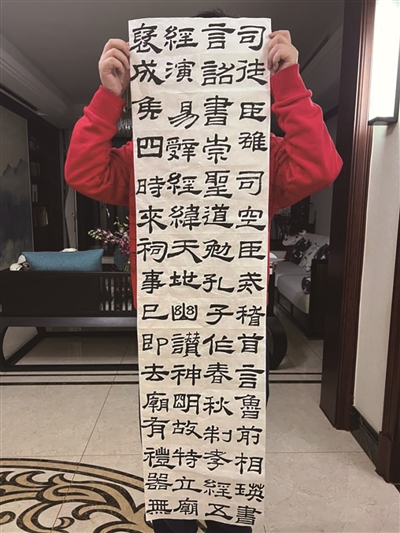 司徒臣雄司空臣戒稽首言魯前相瑛書
言詔書崇聖道勉孔子作春秋制孝經五
經演易辭經緯天地幽讚神明故特立廟
褒成侯四時來祠事已即去廟有禮器無